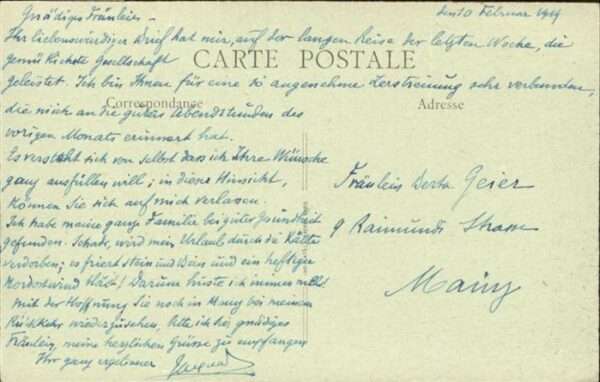 Gnädiges Fräulein –
den 10 Februar 1919
Ihr liebenswürdiger Brief hat mir, auf der langen Reise der letzten Woche, die
CARTE POSTALE
gemütlichste Gesellschaft
geleistet. Ich bin Ihnen für eine so angenehme Zerstreuung sehr verbunden,
Correspondance
Adresse
die mich an die guten Abendstunden des
vorigen Monats erinnert hat.
Es versteht sich von selbst dass ich Ihre Wünsche
ganz ausfüllen will; in dieser Hinsicht,
können Sie sich auf mich verlassen.
Ich habe meine ganze Familie bei guter Gesundheit
gefunden. Schade, wird mein Urlaub durch die Kälte
verdorben; es friert Stein und Bein und ein heftiger
Nordostwind bläst! Darum huste ich immer
Mit der Hoffnung Sie noch in Mainz bei meinem
Rückkehr wiederzusehen, bitte ich Sie, gnädiges
Fräulein, meine herzlichen Grüsse zu empfangen
Ihr ganz ergebener
Fräulein Geier
9 Raimundi Strasse
Mainz